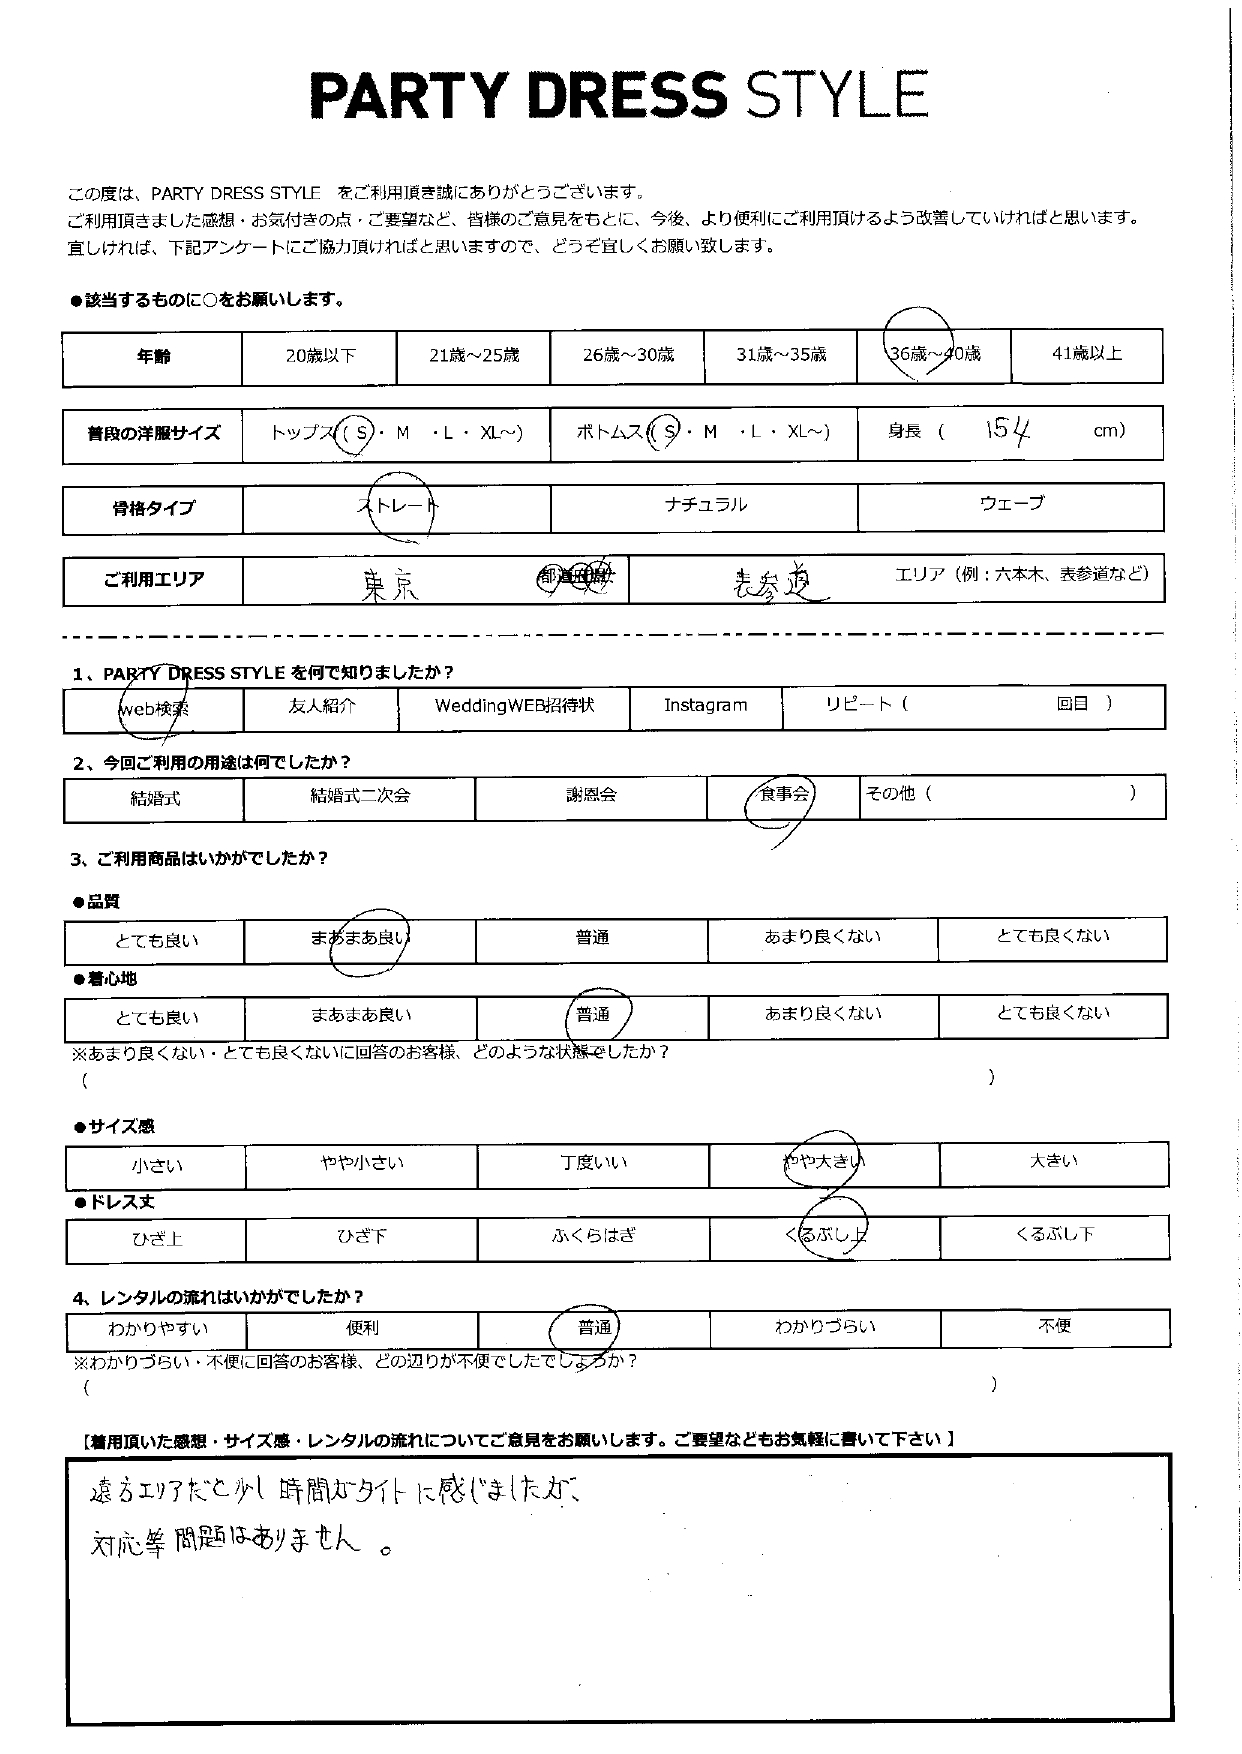 PARTY DRESS STYLE
この度は、PARTY DRESS STYLE をご利用頂き誠にありがとうございます。
ご利用頂きました感想・お気付きの点・ご要望など、皆様のご意見をもとに、今後、より便利にご利用頂けるよう改善していければと思います。
宜しければ、下記アンケートにご協力頂ければと思いますので、どうぞ宜しくお願い致します。
●該当するものに○をお願いします。
年齢 20歳以下 21歳～25歳 26歳～30歳 31歳～35歳 36歳～40歳 41歳以上
普段の洋服サイズ トップス( S ・ M ・L ・ XL～) ボトムス( S ・ M ・L ・ XL～) 身長 ( 154 cm)
骨格タイプ ストレート ナチュラル ウェーブ
ご利用エリア 東京 都道府県 表参道 エリア（例：六本木、表参道など）
1、PARTY DRESS STYLE を何で知りましたか？
web検索 友人紹介 WeddingWEB招待状 Instagram リピート（ 回目 ）
2、今回ご利用の用途は何でしたか？
結婚式 結婚式二次会 謝恩会 食事会 その他（ ）
3、ご利用商品はいかがでしたか？
●品質
とても良い まあまあ良い 普通 あまり良くない とても良くない
●着心地
とても良い まあまあ良い 普通 あまり良くない とても良くない
※あまり良くない・とても良くないに回答のお客様、どのような状態でしたか？
（ ）
●サイズ感
小さい やや小さい 丁度いい やや大きい 大きい
●ドレス丈
ひざ上 ひざ下 ふくらはぎ くるぶし上 くるぶし下
4、レンタルの流れはいかがでしたか？
わかりやすい 便利 普通 わかりづらい 不便
※わかりづらい・不便に回答のお客様、どの辺りが不便でしたでしょうか？
（ ）
【着用頂いた感想・サイズ感・レンタルの流れについてご意見をお願いします。ご要望などもお気軽に書いて下さい 】
遠方エリアだと少し時間がタイトに感じましたが、
対応等問題はありません。